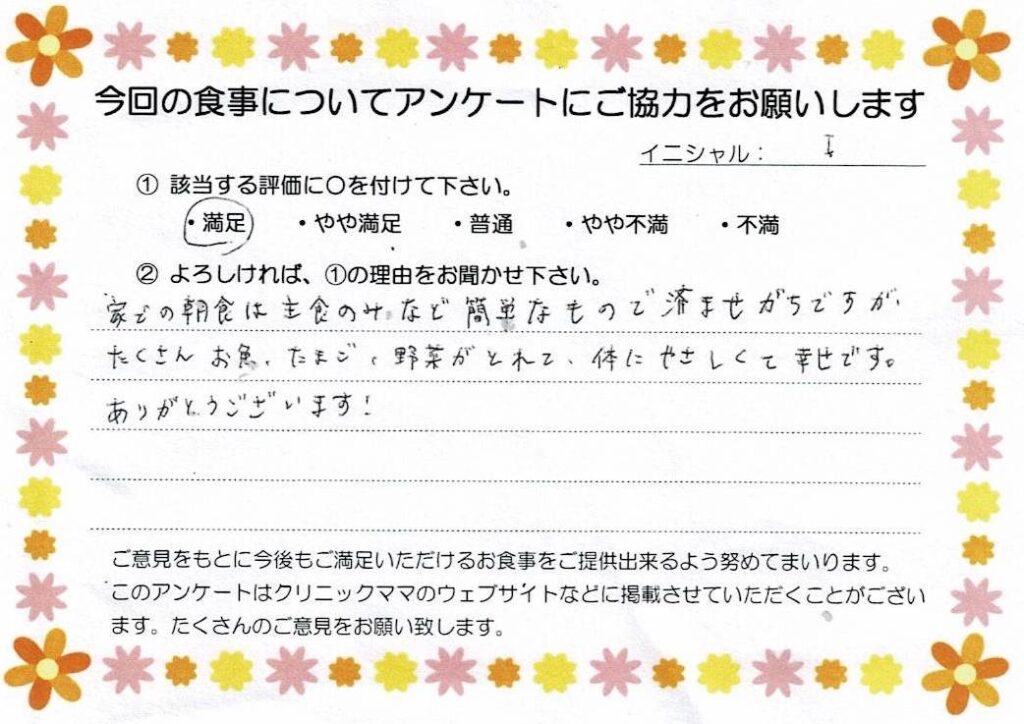 今回の食事についてアンケートにご協力をお願いします
イニシャル: I
① 該当する評価に○を付けて下さい。
・満足 ・やや満足 ・普通 ・やや不満 ・不満
② よろしければ、①の理由をお聞かせ下さい。
家での朝食は主食のみなど簡単なもので済ませがちですが、
たくさんお魚、たまご、野菜がとれて、体にやさしくて幸せです。
ありがとうございます!
ご意見をもとに今後もご満足いただけるお食事をご提供出来るよう努めてまいります。
このアンケートはクリニックママのウェブサイトなどに掲載させていただくことがござい
ます。たくさんのご意見をお願い致します。